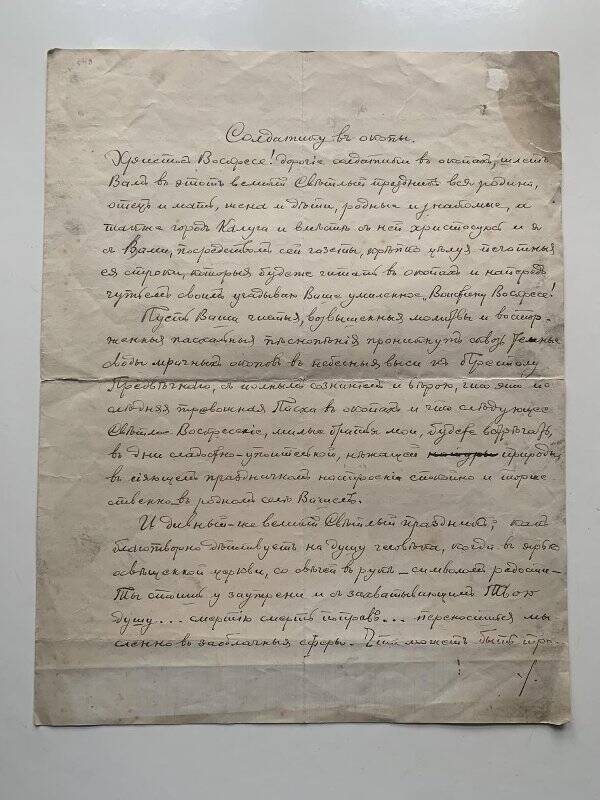 Солдатику въ окопы.
Христосъ Воскресе! дорогіе солдатики въ окопахъ, шлетъ
Вамъ въ этотъ великій Свѣтлый праздникъ вся родина,
отецъ и мать, жена и дѣти, родные и знакомые, а
также городъ Калуга и вмѣстѣ съ ней христосуюсь и я
съ Вами, посредствомъ сей газеты, крѣпко цѣлуя печатныя
ея строки, которыя будете читать въ окопахъ и напередъ
чутьемъ своимъ угадываю Ваше умиленное, Воистину Воскресе!
Пусть Ваши чистыя, возвышенныя молитвы и востор-
женныя пасхальныя пѣснопѣнія проникнутъ сквозь темные
своды мрачныхъ окоповъ въ небесныя выси къ Престолу
Предвѣчнаго, съ полнымъ сознаніемъ и вѣрою, что это по
слѣдняя тревожная Пасха въ окопахъ и что слѣдующее
Свѣтлое Воскресеніе, милые братья мои, будете встрѣчать,
въ дни сладостно-упоительной, нѣжащей природы
въ сіяющемъ праздничномъ настроеніи спокойно и торже
ственно въ родномъ селѣ
И дивный-же великій Свѣтлый праздникъ; какъ
благотворно дѣйствуетъ на душу человѣка, когда въ ярко
освѣщенной церкви, со свѣчей въ рукѣ - символомъ радости -
Ты стоишь у заутрени и съ захватывающимъ Твою
душу... смертію смерть поправъ... переносишься мы
сленно въ заоблачныя сферы. Что можетъ быть тро-